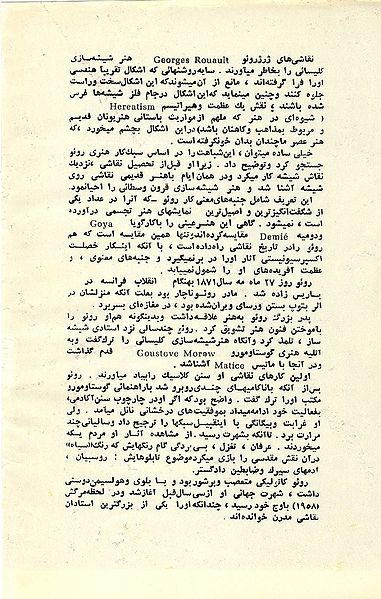 نقاشی‌های ژرژرونو Georges Rouault هنر شیشه‌سازی
کلیسائی را بخاطر میآورند . سایه‌روشنهائی که اشکال تقریباً هندسی
اورا فرا گرفته‌اند ، مانع از آن میشوندکه این اشکال سخت وراست
جلوه کنند وچنین مینمایدکه‌این‌اشکال درجام فلز شیشه‌ها غرس
شده باشند ؛ نقش یك عظمت وهیراتیسم Hereatism
( شیوه‌ای در هنر که ملهم ازمواریث باستانی هنریونان قدیم
و مربوط بمذاهب وکاهنان باشد) دراین اشکال بچشم میخورد ،که
هنر عصر ماچندان بدان خونگرفته‌است .
خیلی ساده میتوان ، این‌شباهت‌را در اساس سبك‌کار هنری رونو
جستجو کرد وتوضیح داد . زیرا او قبل‌از تحصیل نقاشی ،نزدیك
نقاش شیشه کار میکرد ودر همان ایام باهنر قدیمی نقاشی روی
شیشه آشنا شد و هنر شیشه‌سازی قرون وسطائی را احیانمود.
این تعریف شامل جنبه‌های‌معنی‌کار رونو سکه آنرا در عداد یکی
از شگفت‌انگیزترین و اصیل‌ترین نمایشهای هنر تجسمی درآورده
است ، نمیشود . گاهی این هنرعینی را باکارگویا Goya
ودومیه Demié مقایسه‌کرده‌اندوتنها همین مقایسه است که هم
رونو رادر تاریخ نقاشی راه‌داده‌است ، با آنکه ابتکار خصلت
اکسپرسیونیستی آثار اورا در برنمیگیرد و جنبه‌های معنوی ، و
عظمت آفریده‌های او را شمول‌نمییابد .
رونو روز ۲۷ ماه مه سال۱۸۷۱ بهنگام انقلاب فرانسه در
پاریس زاده شد. مادر رونوناچار بود بعلت آنکه منزلشان در
اثر بتوپ بستن ورسای ویران‌شده بود ، در مغازه‌ای بسربرد .
پدر بزرگ رونو به‌هنر علاقه‌داشت وبدینگونه هم‌او رونو را
بآموختن فنون هنر تشویق کرد . رونو چندسالی نزد استادی شیشه
ساز ، تلمذ کرد وآنگاه هنرشیشه‌سازی کلیسائی را ترك‌گفت وبه
اتلیه هنری گوستاومورو Goustove Moraw قدم گذاشت
ودر آنجا با ماتیس Matice آشناشد .
اولین کارهای نقاشی او سنن کلاسیك رابیاد میآورند . رونو
پس‌از آنکه باناکامیهای چندی‌روبرو شد باراهنمائی گوستاومورو
مکتب اورا ترك گفت . واضح بودکه اگر اودر چارچوب سنن‌آکادمی،
بفعالیت خود ادامه‌میداد بموفقیت‌های درخشانی نائل میآمد . ولی
او غرابت وبیگانگی با اینقبیل‌سبکها را ترجیح داد وسالیانی‌چند
مرارت برد . تاآنکه بشهرت رسید .از مشاهده آثار او مردم یکه
میخوردند . عرفان ، تغزل ، بی‌پردگی گام رنگهایش که رنگ«سیاه»
درآن نقش مقدسی را بازی میکردموضوع تابلوهایش : روسپیان ،
آدمهای سیرك وضابطین دادگستر.
رونو کاتولیکی متعصب وپرشوربود و با بلوی وهولسیمن‌دوستی
داشت ، شهرت جهانی او ازسی سال‌قبل آغازشد ودر لحظه‌مرگش
(۱۹۵۸) باوج خود رسید ، چندانکه اورا یکی از بزرگترین استادان
نقاشی مدرن خوانده‌اند .